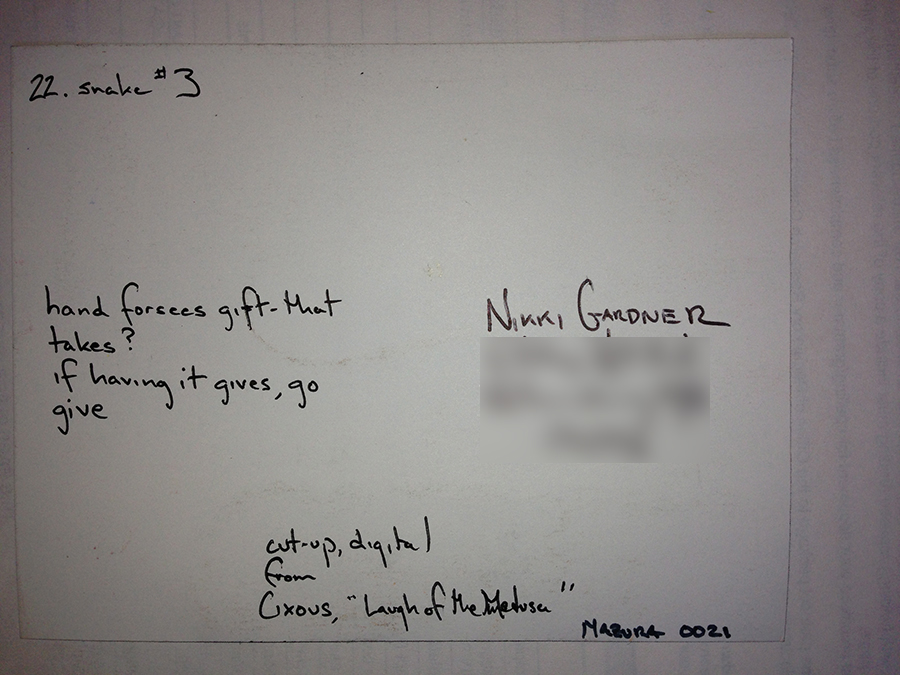 22. snake #3
hand forsees gift-that
takes?
if having it gives, go
give
NIKKI GARDNER
cut-up, digital
from
Cixous, "Laugh of the Medusa"
MAZURA 0021